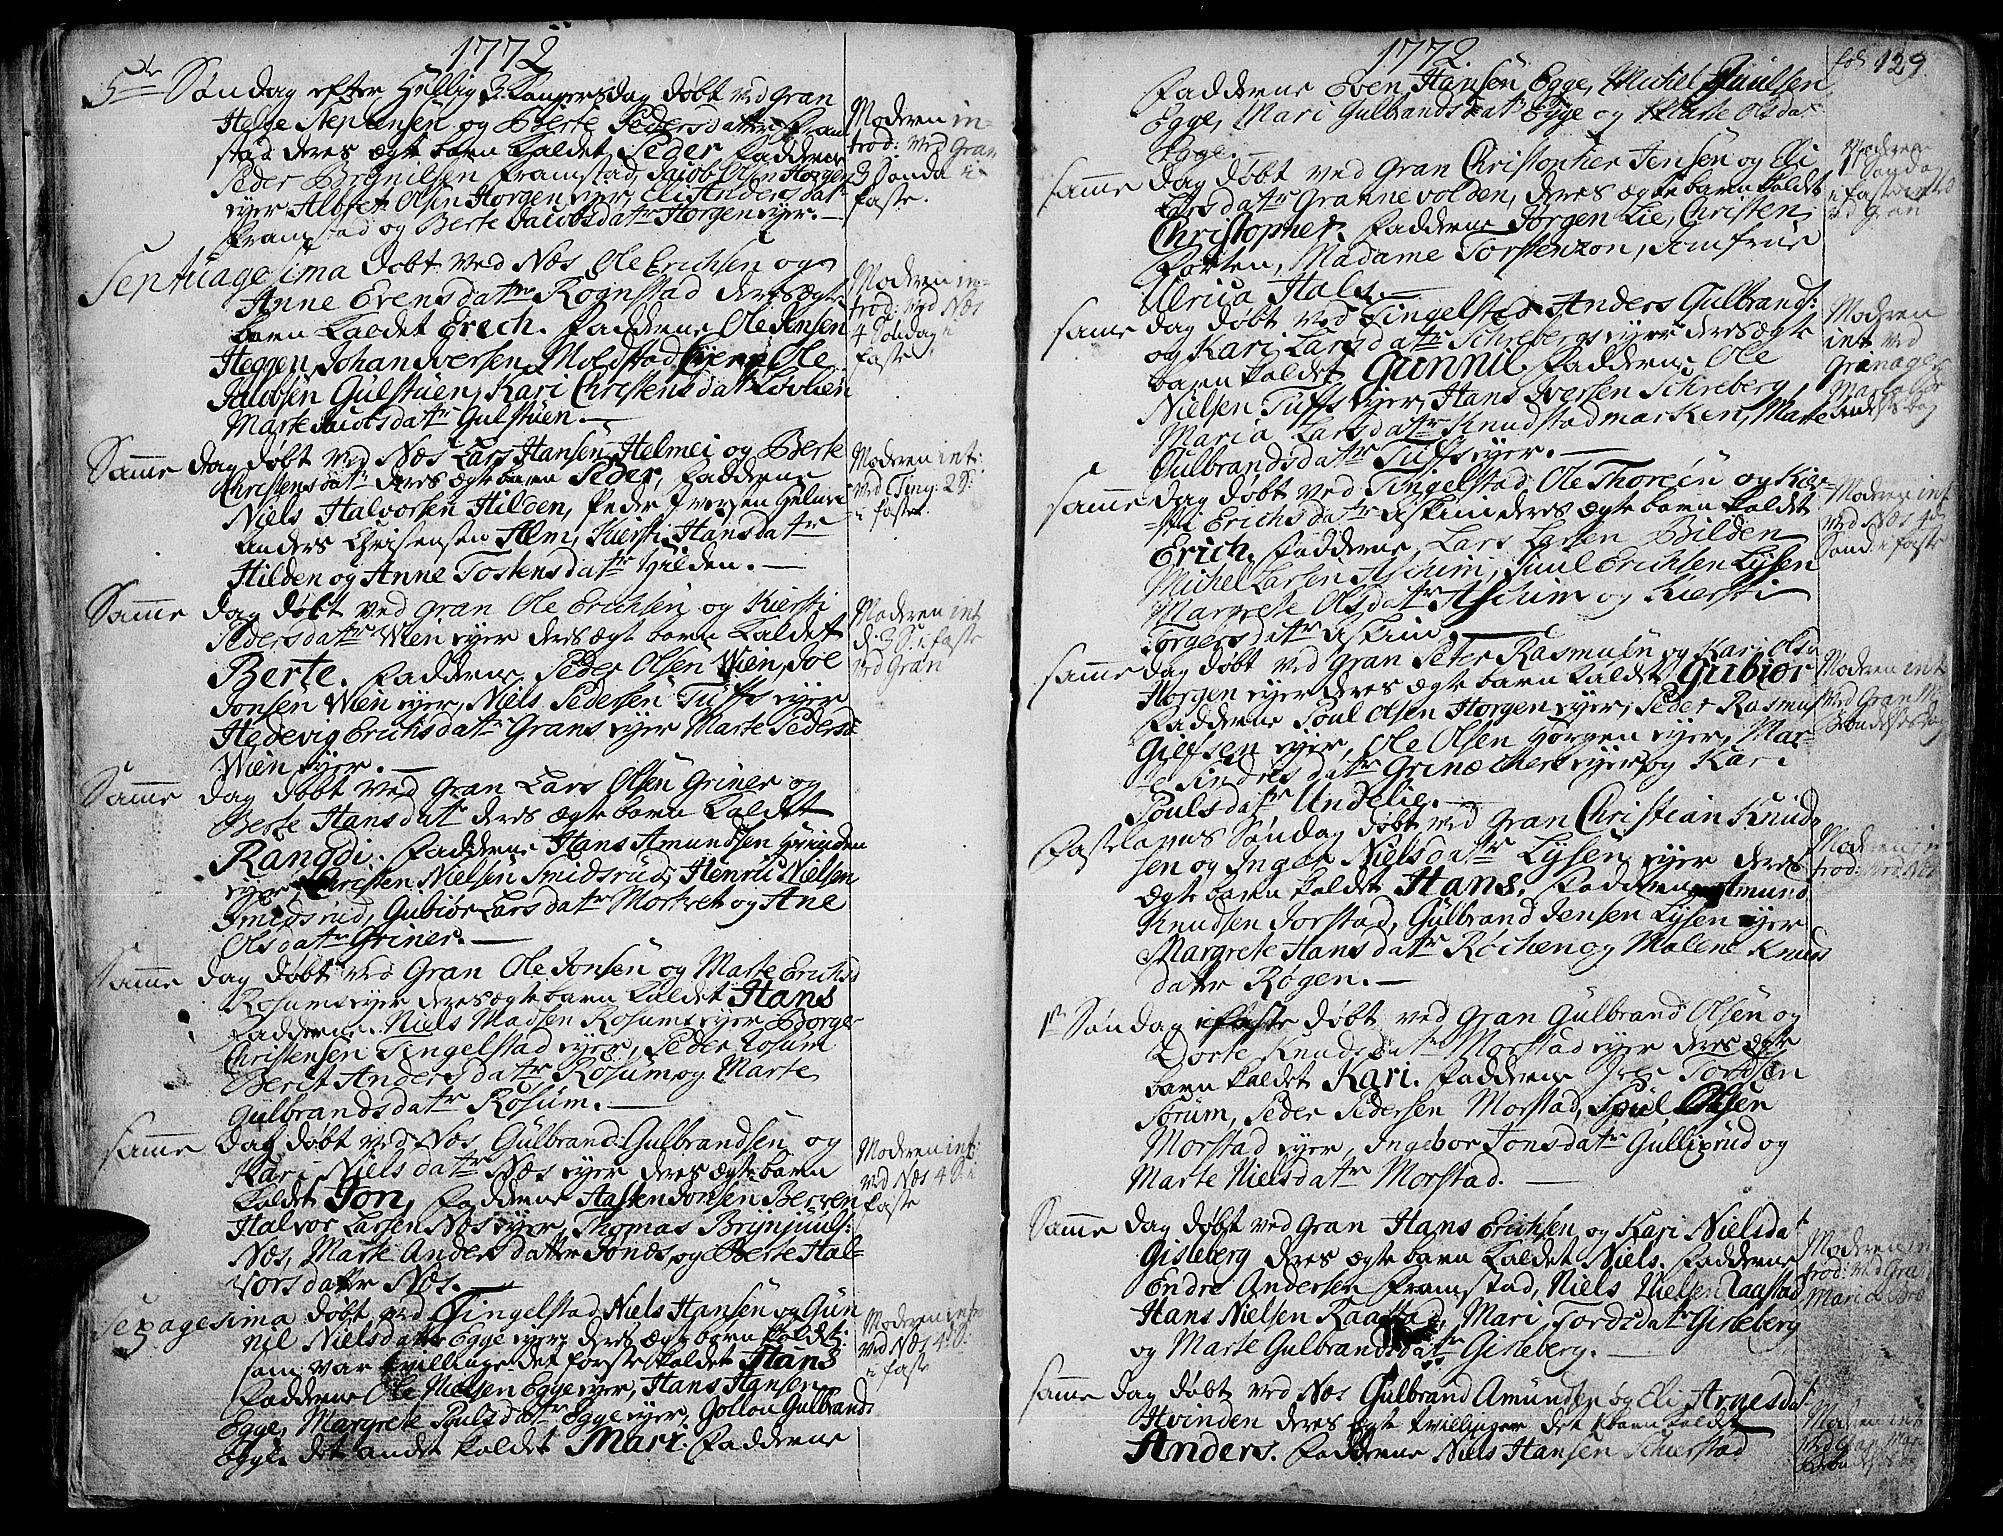 1772
5te Søndag efter Hellig 3 Kongersdag døbt ved Gran
Helge Stephensen og Berte Pedersdatter Fram
stad deres ægte barn kaldet Peder Faddere
Peder Brynilsen Framstad, Jacob Olsen Horgen
eyer Olsen Horgen eyer, Eli Anders dat
Framstad og Berte Jacobsdatr Horgen eyer.
Moderen in-
trod: ved Gran
3 Sønda i
faste.
Septuagesima døbt ved Næs Ole Erichsen og
Anne Evensdatter Rognstad deres ægte
barn kaldet Erich. Faddere Ole Jensen
Heggen, Johan Iversen Moldstad eyer, Ole
Jacobsen Gulstuen, Kari Christensdatr Løvlien
Marte Jacobsdatr Gulstuen.
Moderen in-
trod: ved Næs
4 Søndag i
faste.
Samme dag døbt ved Næs Lars Hansen Helmei og Berte
Christensdatr deres ægte barn Peder, Faddere
Niels Halvorsen Hilden, Peder Iversen
Anders Chrisensen Helm, Kiersti Hansdatr
Hilden og Anne Tostensdatr Hilden.
Moderen int:
ved Ting: 2 S:
i faste.
Samme dag døbt ved Gran Ole Erichsen og Kiersti
Pedersdatr Wien eyer deres ægte barn kaldet
Berte. Faddere Peder Olsen Wien, Joe
Jonsen Wien eyer, Niels Pedersen Tuffs eyer
Hedevig Erichsdatr Grans eyer Marte Pedersd
Wien eyer.
Moderen int
d: 3 S: i faste
ved Gran
Samme dag døbt ved Gran Lars Olsen Griner og
Berte Hansdatr deres ægte barn kaldet
Rangdi. Faddere Hans Amundsen Hvinden
eyer Christen Nielsen Smidsrud, Henric Nielsen
Smidsrud, Gubiør Larsdatr Morken og Ane
Olsdatr Griner.
Samme dag døbt ved Gran Ole Jonsen og Marte Erichsd
Rosums eyer deres ægte barn kaldet Hans
Faddere Niels Madsen Rosums eyer Borger
Christensen Tingelstad eyer, Peder Rosum
Berit Andersdatr Rosum og Marte
Gulbrandsdatr Rosum.
Samme dag døbt ved Næs Gulbrand Gulbrandsen og
Kari Nielsdatr Næs eyer deres ægte barn
kaldet Jon, Faddere Aasten Jonsen Bergen
Halvor Larsen Næs eyer, Thomas Brynjuuls:
Næs, Marte Andersdatter Jones, og Berte Hal-
vorsdatter Næs.
Moderen int:
ved Næs 4 S: i
faste
Sexagesima døbt ved Tingelstad Niels Hansen og Gun
nil Nielsdatter Egge eyer deres ægte barn kaldet:
som var tvillinge det første kaldet Hans
Faddere Ole Nielsen Egge eyer, Hans Hansen
Egge, Margrete Poulsdatr Egge eyer, Gollou Gulbrands
Egge. det andet kaldet Mari. Faddere
Moderen int
ved Næs 4 S:
i faste
1772
fol 129.
Faddere Even Hansen Egge, Michel Paulsen
Egge, Mari Gulbrandsdatr Egge og Marte Olsdat
Egge.
samme dag døbt ved Gran Christopher Jensen og Eli
Larsdatr Grannevolden, deres ægte barn kaldet
Christopher. Faddere Jørgen Lie, Christen
Forten, Madame Torstenson, Jomfrue
Ulrica Hals.
Moderen
Sønda
i faste
ved Gran
samme dag døbt ved Tingelstad Anders Gulbrands:
og Kari Larsdatr Schrebergs eyer deres ægte
barn kaldet Gunnil. Faddere Ole
Nielsen Tuffs eyer, Hans Iversen Schreberg,
Maria Larsdatr Knudstadmarken, Marte
Gulbrandsdatr Tuffs eyer.
Moderen
int ved
Gran
samme dag døbt ved Tingelstad, Ole Thoreen og Kier
sti Erichsdatr Askim deres ægte barn kaldet
Erich. Faddere, Lars Larsen Bilden
Michel Larsen Aschim, Juul Erichsen Lysen
Margrete Olsdatr Aschim og Kiersti
Torgersdatr Askim.
Moderen int
ved Næs 4de
Sønd: i faste
samme dag døbt ved Gran Peter Rasmusn og Kari Olsd
Horgen eyer deres ægte barn kaldet Gubiør
Faddere Poul Olsen Horgen eyer, Peder Rasmus
eyer, Ole Olsen Horgen eyer, Mar-
te Sindresdatr Grinacher eyer og Kari
Poulsdatr Undelie.
Moderen int
ved Gran
Fastelavns Søndag døbt ved Gran Christian Knud
sen og Inger Nielsdatr Lysen eyer deres
ægte barn kaldet Hans. Faddere Amund
Knudsen Jorstad, Gulbrand Jensen Lysen eyer
Margrete Hansdatr Røchen og Malene Knuds
datter Røgen.
Moderen in
trod: ved
1te Søndag i faste døbt ved Gran Gulbrand Olsen og
Dorte Knudsdatr Morstad eyer deres ægte
barn kaldet Kari. Faddere Iver Tordsen
Sørum, Peder Pedersen Morstad, Poul Olsen
Morstad eyer, Ingebor Jonsdatr Gullixrud og
Marte Nielsdatr Morstad.
Samme dag døbt ved Gran Hans Erichsen og Kari Nielsdat
Gisleberg deres ægte barn kaldet Niels. Faddere
Endre Andersen Framstad, Niels Nielsen Raastad
Hans Nielsen Raastad, Mari Tordsdatr Gisleberg
og Marte Gulbrandsdatr Gisleberg.
Moderen in
trod: ved Gra
samme dag døbt ved Næs Gulbrand Amundsen og Eli Arnesdat
Hvinden deres ægte tvillinger det 1 barn kaldet
Anders. Faddere Niels Hansen Schierstad
Moderen int
ved Gran Mari